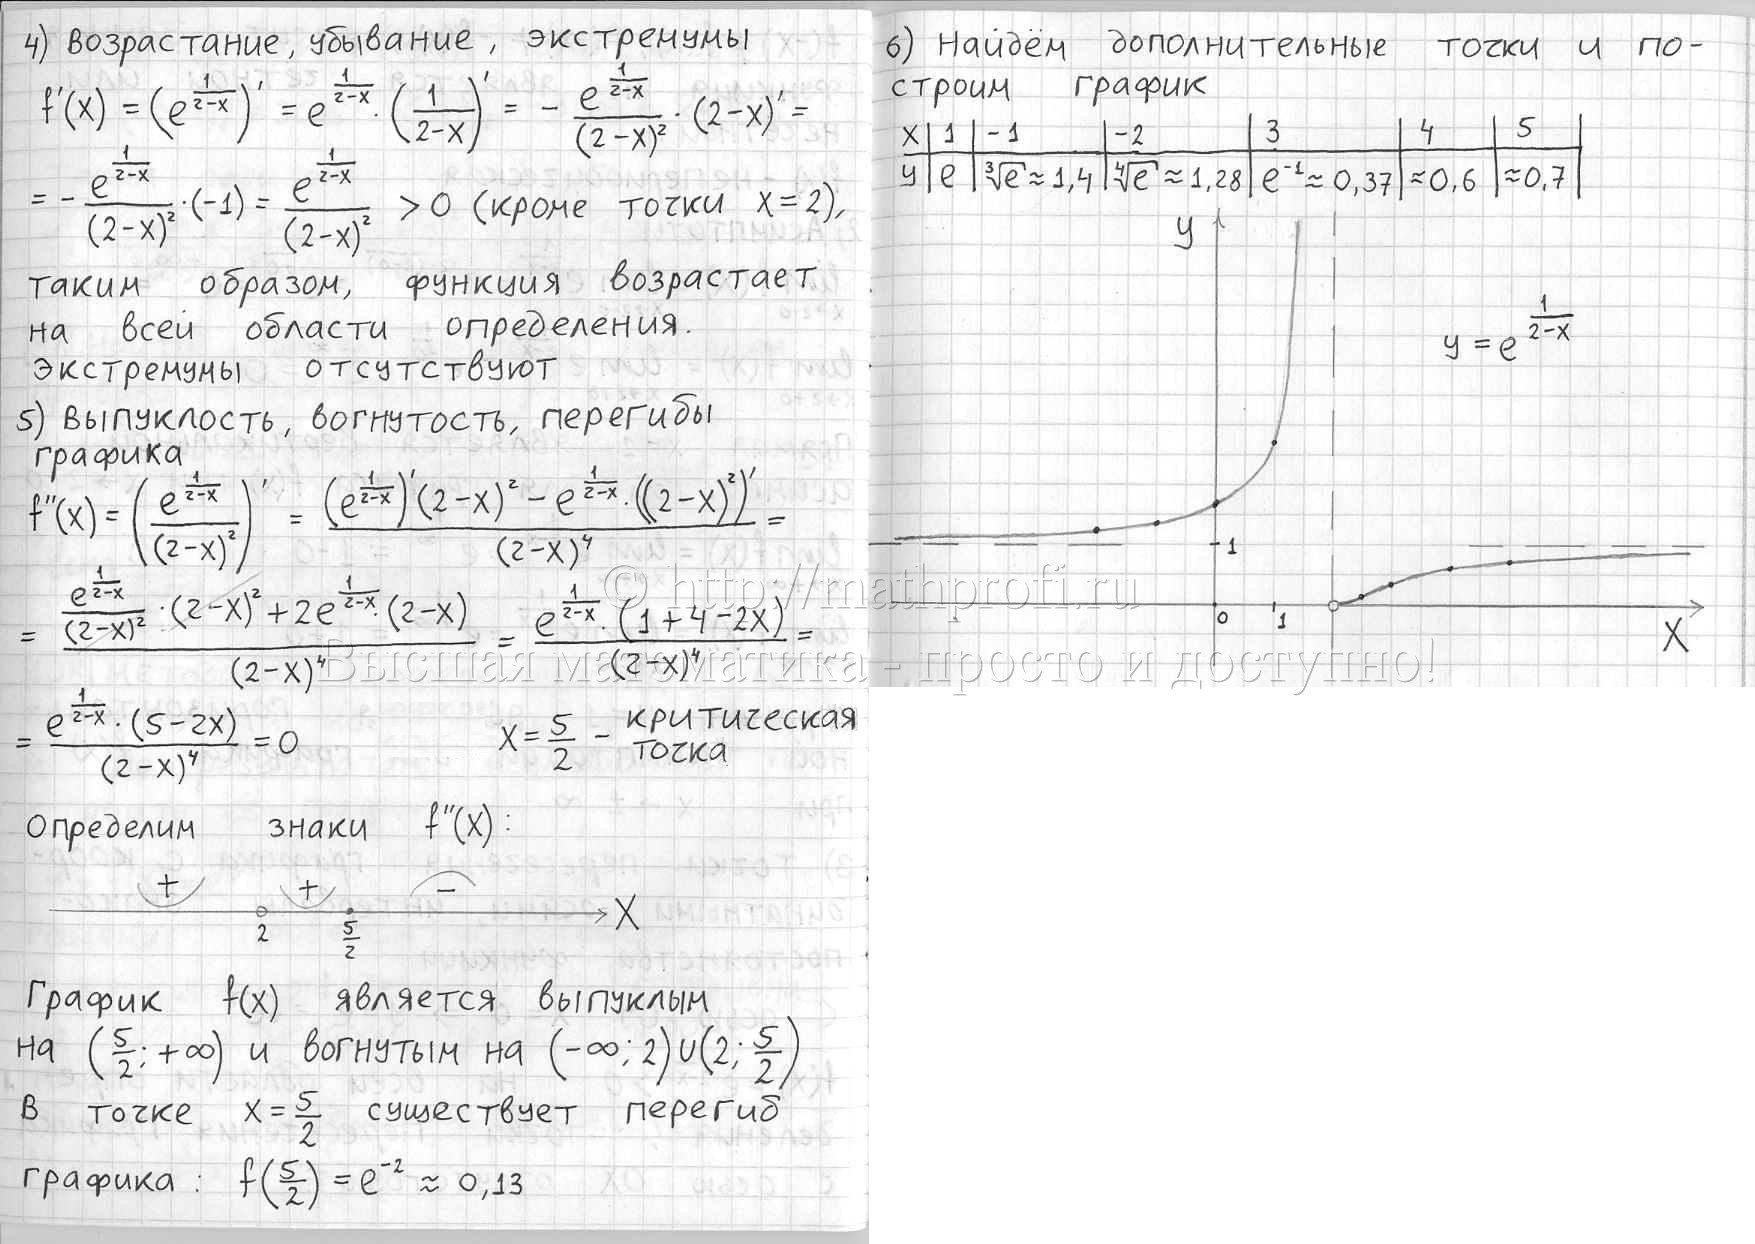 4) Возрастание, убывание, экстремумы
f'(x) = (e^{\frac{1}{2-x}})' = e^{\frac{1}{2-x}} · (\frac{1}{2-x})' = - \frac{e^{\frac{1}{2-x}}}{(2-x)^2} · (2-x)' =
= - \frac{e^{\frac{1}{2-x}}}{(2-x)^2} · (-1) = \frac{e^{\frac{1}{2-x}}}{(2-x)^2} > 0 (кроме точки x=2),
таким образом, функция возрастает
на всей области определения.
Экстремумы отсутствуют
5) Выпуклость, вогнутость, перегибы
графика
f''(x) = (\frac{e^{\frac{1}{2-x}}}{(2-x)^2})' = \frac{(e^{\frac{1}{2-x}})'(2-x)^2 - e^{\frac{1}{2-x}} · ((2-x)^2)'}{(2-x)^4} =
= \frac{\frac{e^{\frac{1}{2-x}}}{(2-x)^2} · (2-x)^2 + 2e^{\frac{1}{2-x}} · (2-x)}{(2-x)^4} = \frac{e^{\frac{1}{2-x}} · (1+4-2x)}{(2-x)^4} =
= \frac{e^{\frac{1}{2-x}} · (5-2x)}{(2-x)^4} = 0 x = \frac{5}{2} - критическая
точка
Определим знаки f''(x):
+ + -
2 \frac{5}{2} X
График f(x) является выпуклым
на (\frac{5}{2}; +∞) и вогнутым на (-∞; 2)∪(2; \frac{5}{2})
В точке x = \frac{5}{2} существует перегиб
графика: f(\frac{5}{2}) = e^{-2} ≈ 0,13
6) Найдём дополнительные точки и по-
строим график
x | 1 | -1 | -2 | 3 | 4 | 5
y | e | \sqrt[3]{e} ≈ 1,4 | \sqrt[4]{e} ≈ 1,28 | e^{-1} ≈ 0,37 | ≈0,6 | ≈0,7
y
y = e^{\frac{1}{2-x}}
1
0 1
X
© http://mathprofi.ru
Высшая математика - просто и доступно!